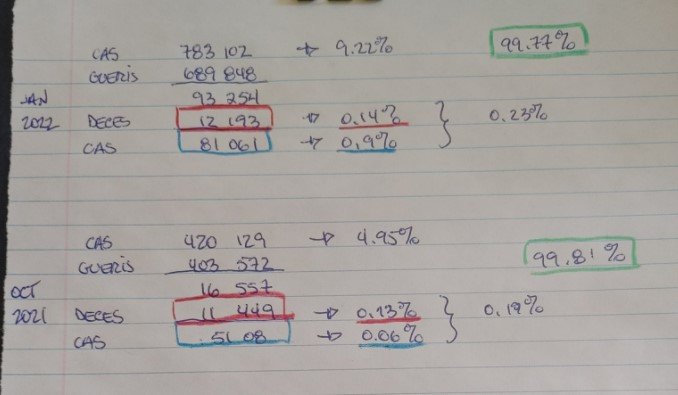 CAS 783 102 → 9.22% 99.77%
GUERIS 689 848
93 254
JAN
2022 DECES 12 193 → 0.14% } 0.23%
CAS 81 061 → 0,9%
CAS 420 129 → 4.95%
GUERIS 403 572 99.81%
OCT 16 557
2021 DECES 11 449 → 0.13% } 0.19%
CAS 5108 → 0.06%